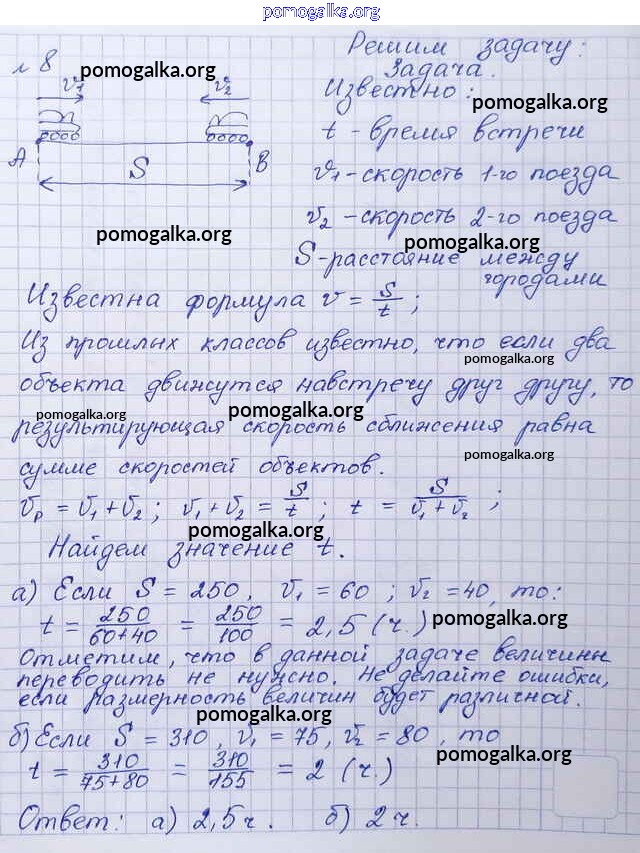 pomogalka.org
№ 8
Решим задачу:
Задача.
pomogalka.org
v₁ v₂
Известно:
pomogalka.org
t - время встречи
A S B
v₁ - скорость 1-го поезда
v₂ - скорость 2-го поезда
pomogalka.org
pomogalka.org
S - расстояние между
городами
Известна формула v = S/t ;
Из прошлых классов известно, что если два
pomogalka.org
объекта движутся навстречу друг другу, то
pomogalka.org
pomogalka.org
результирующая скорость сближения равна
pomogalka.org
сумме скоростей объектов.
vₚ = v₁ + v₂ ; v₁ + v₂ = S/t ; t = S/(v₁ + v₂) ;
pomogalka.org
Найдем значение t.
а) Если S = 250, v₁ = 60 ; v₂ = 40, то:
t = 250/(60+40) = 250/100 = 2,5 (ч.)
pomogalka.org
Отметим, что в данной задаче величины
переводить не нужно. Не делайте ошибки,
если размерность величин будет различной.
pomogalka.org
б) Если S = 310, v₁ = 75, v₂ = 80, то
t = 310/(75+80) = 310/155 = 2 (ч.)
pomogalka.org
Ответ: а) 2,5 ч. б) 2 ч.